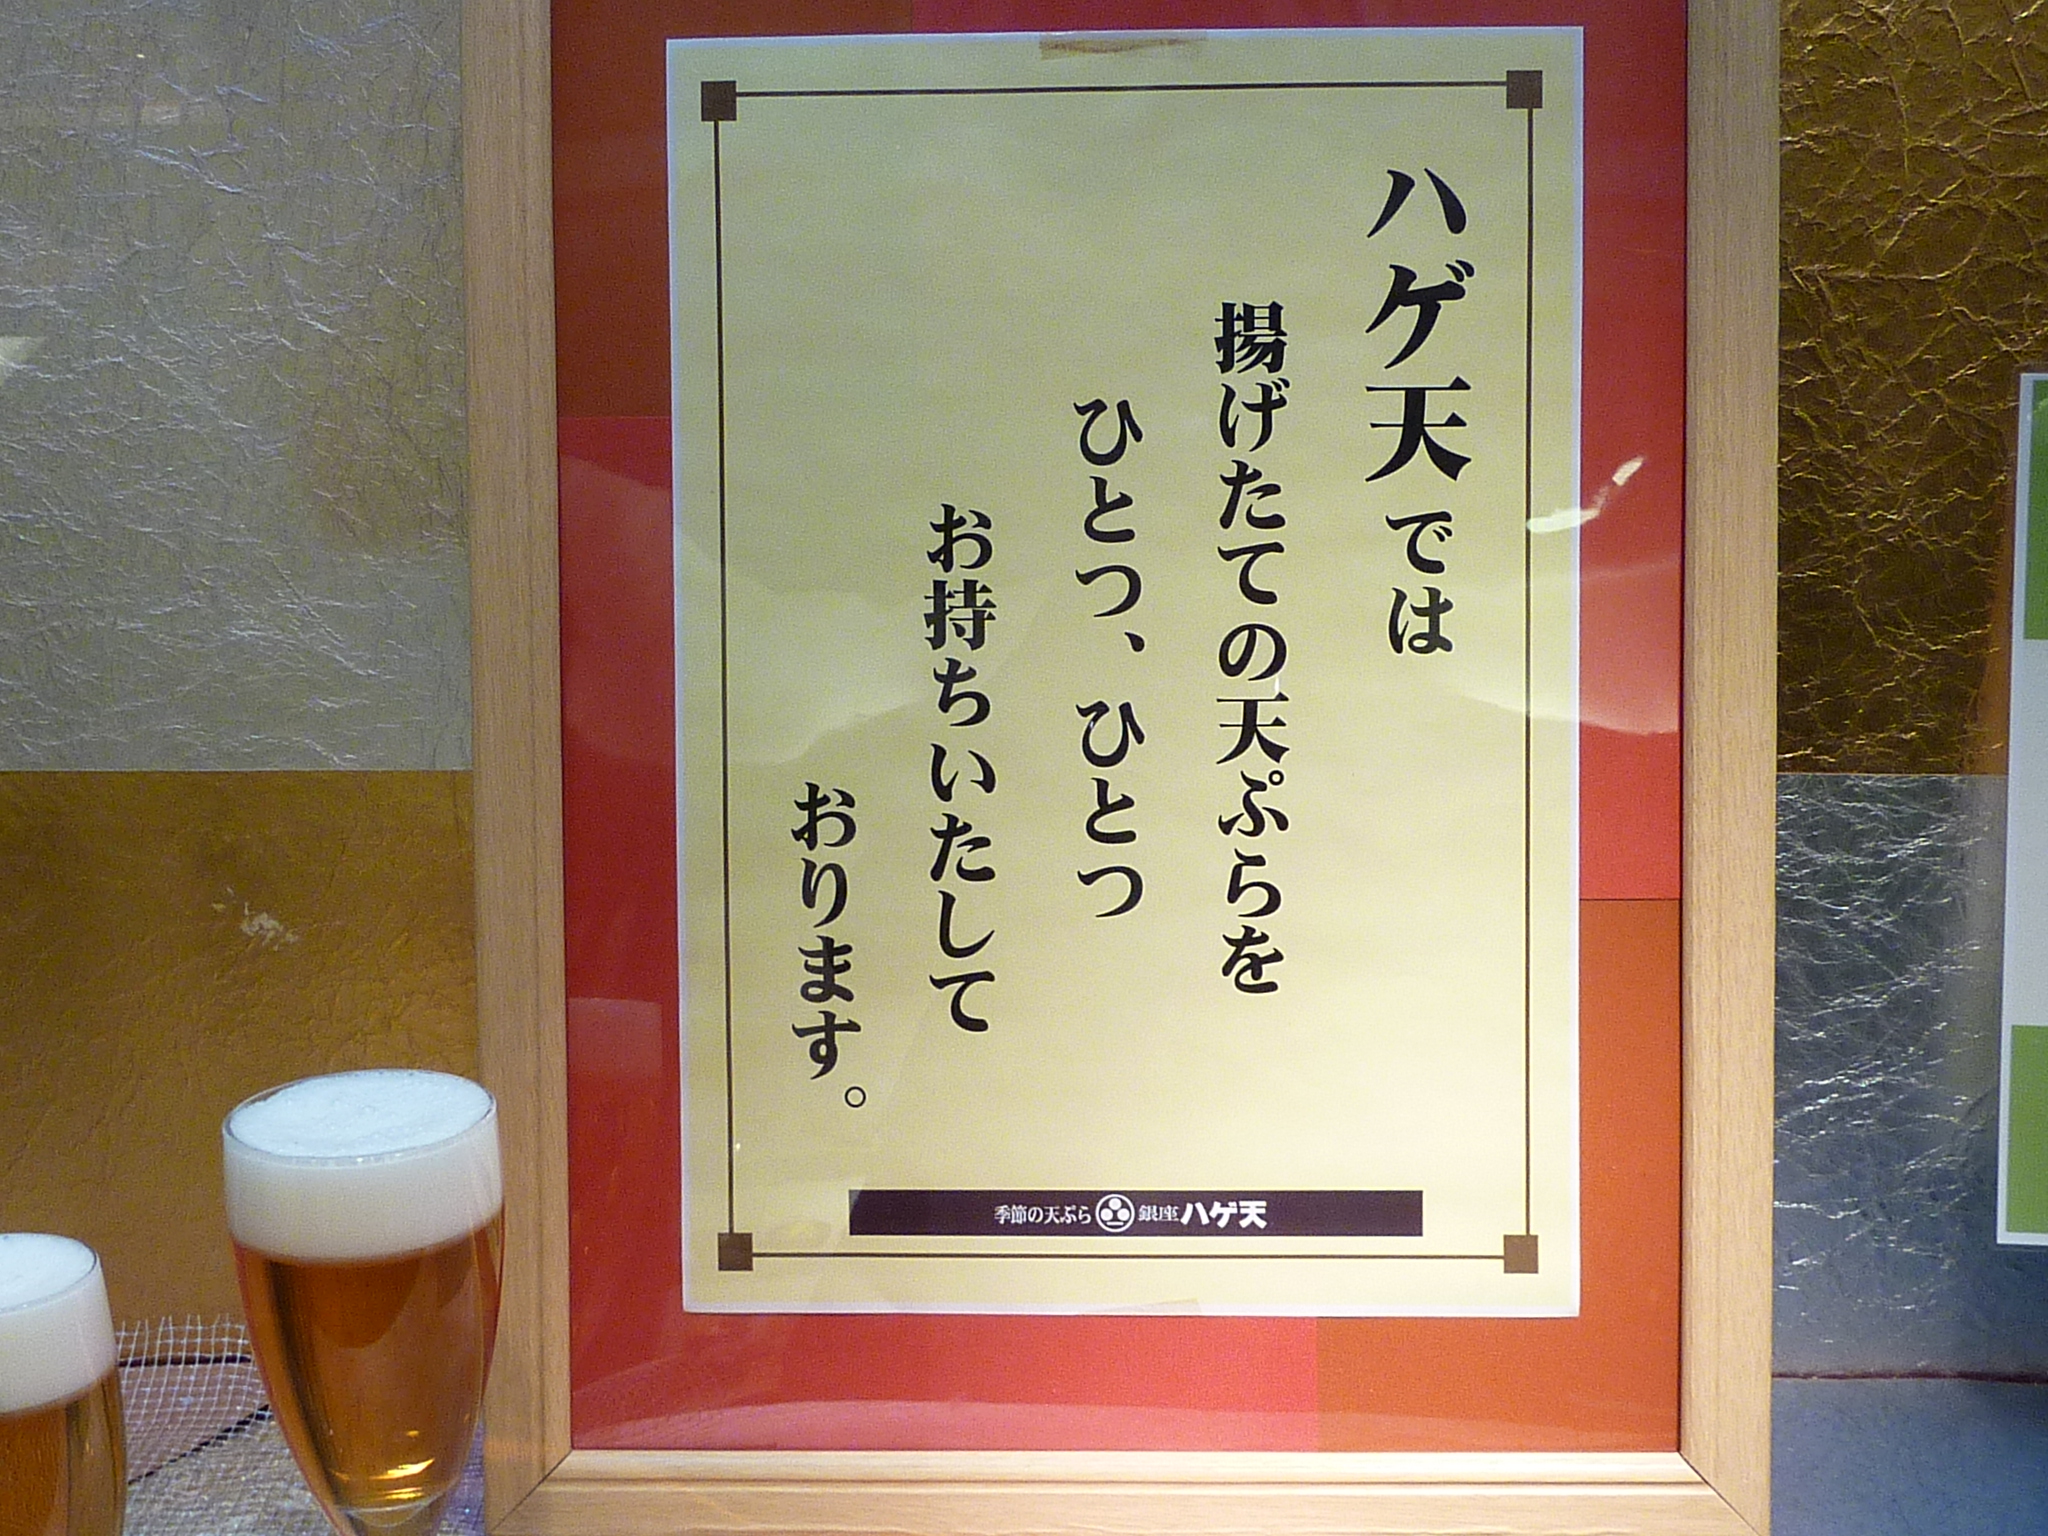 ハゲ天では
揚げたての天ぷらを
ひとつ、ひとつ
お持ちいたして
おります。
季節の天ぷら 銀座 ハゲ天